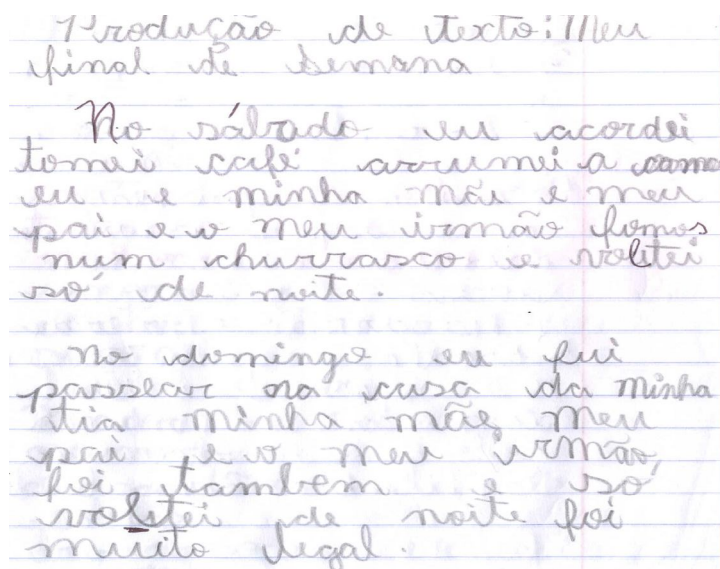 Produção de texto: Meu
final de semana
No sábado eu acordei
tomei café arrumei a cama
eu e minha mãe e meu
pai e o meu irmão fomos
num churrasco e voltei
só de noite.
No domingo eu fui
passear na casa da minha
tia minha mãe meu
pai e o meu irmão,
foi tambem e só
voltei de noite foi
muito legal.